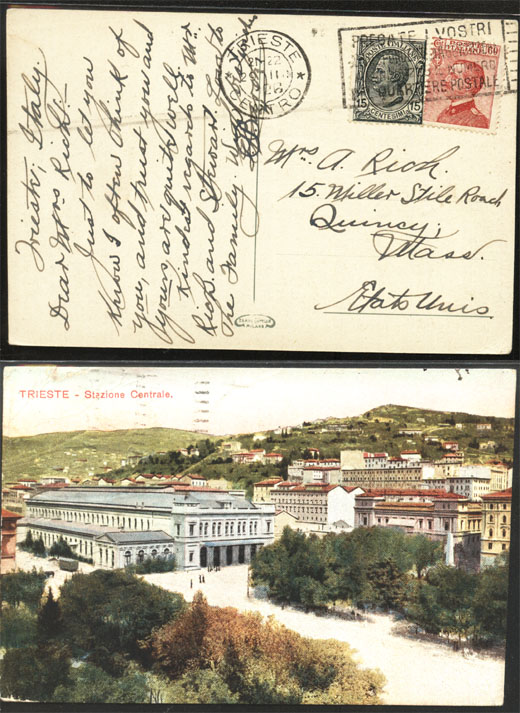 Trieste, Italy
Dear Mrs Rich:-
Just to let you
know I often think of
you, and trust you and
yours are quite well.
Kindest regards to Mr.
Rich and Stewart. Love to
the Family.
TRIESTE
CENTRO
22
26
I VOSTRI
QUARTIERE POSTALE
POSTE ITALIANE
15 15
CENTESIMI
Mrs. A. Rich.
15. Willer Stile Road
Quincy,
Mass.
Etats Unis
MILANO
TRIESTE - Stazione Centrale.